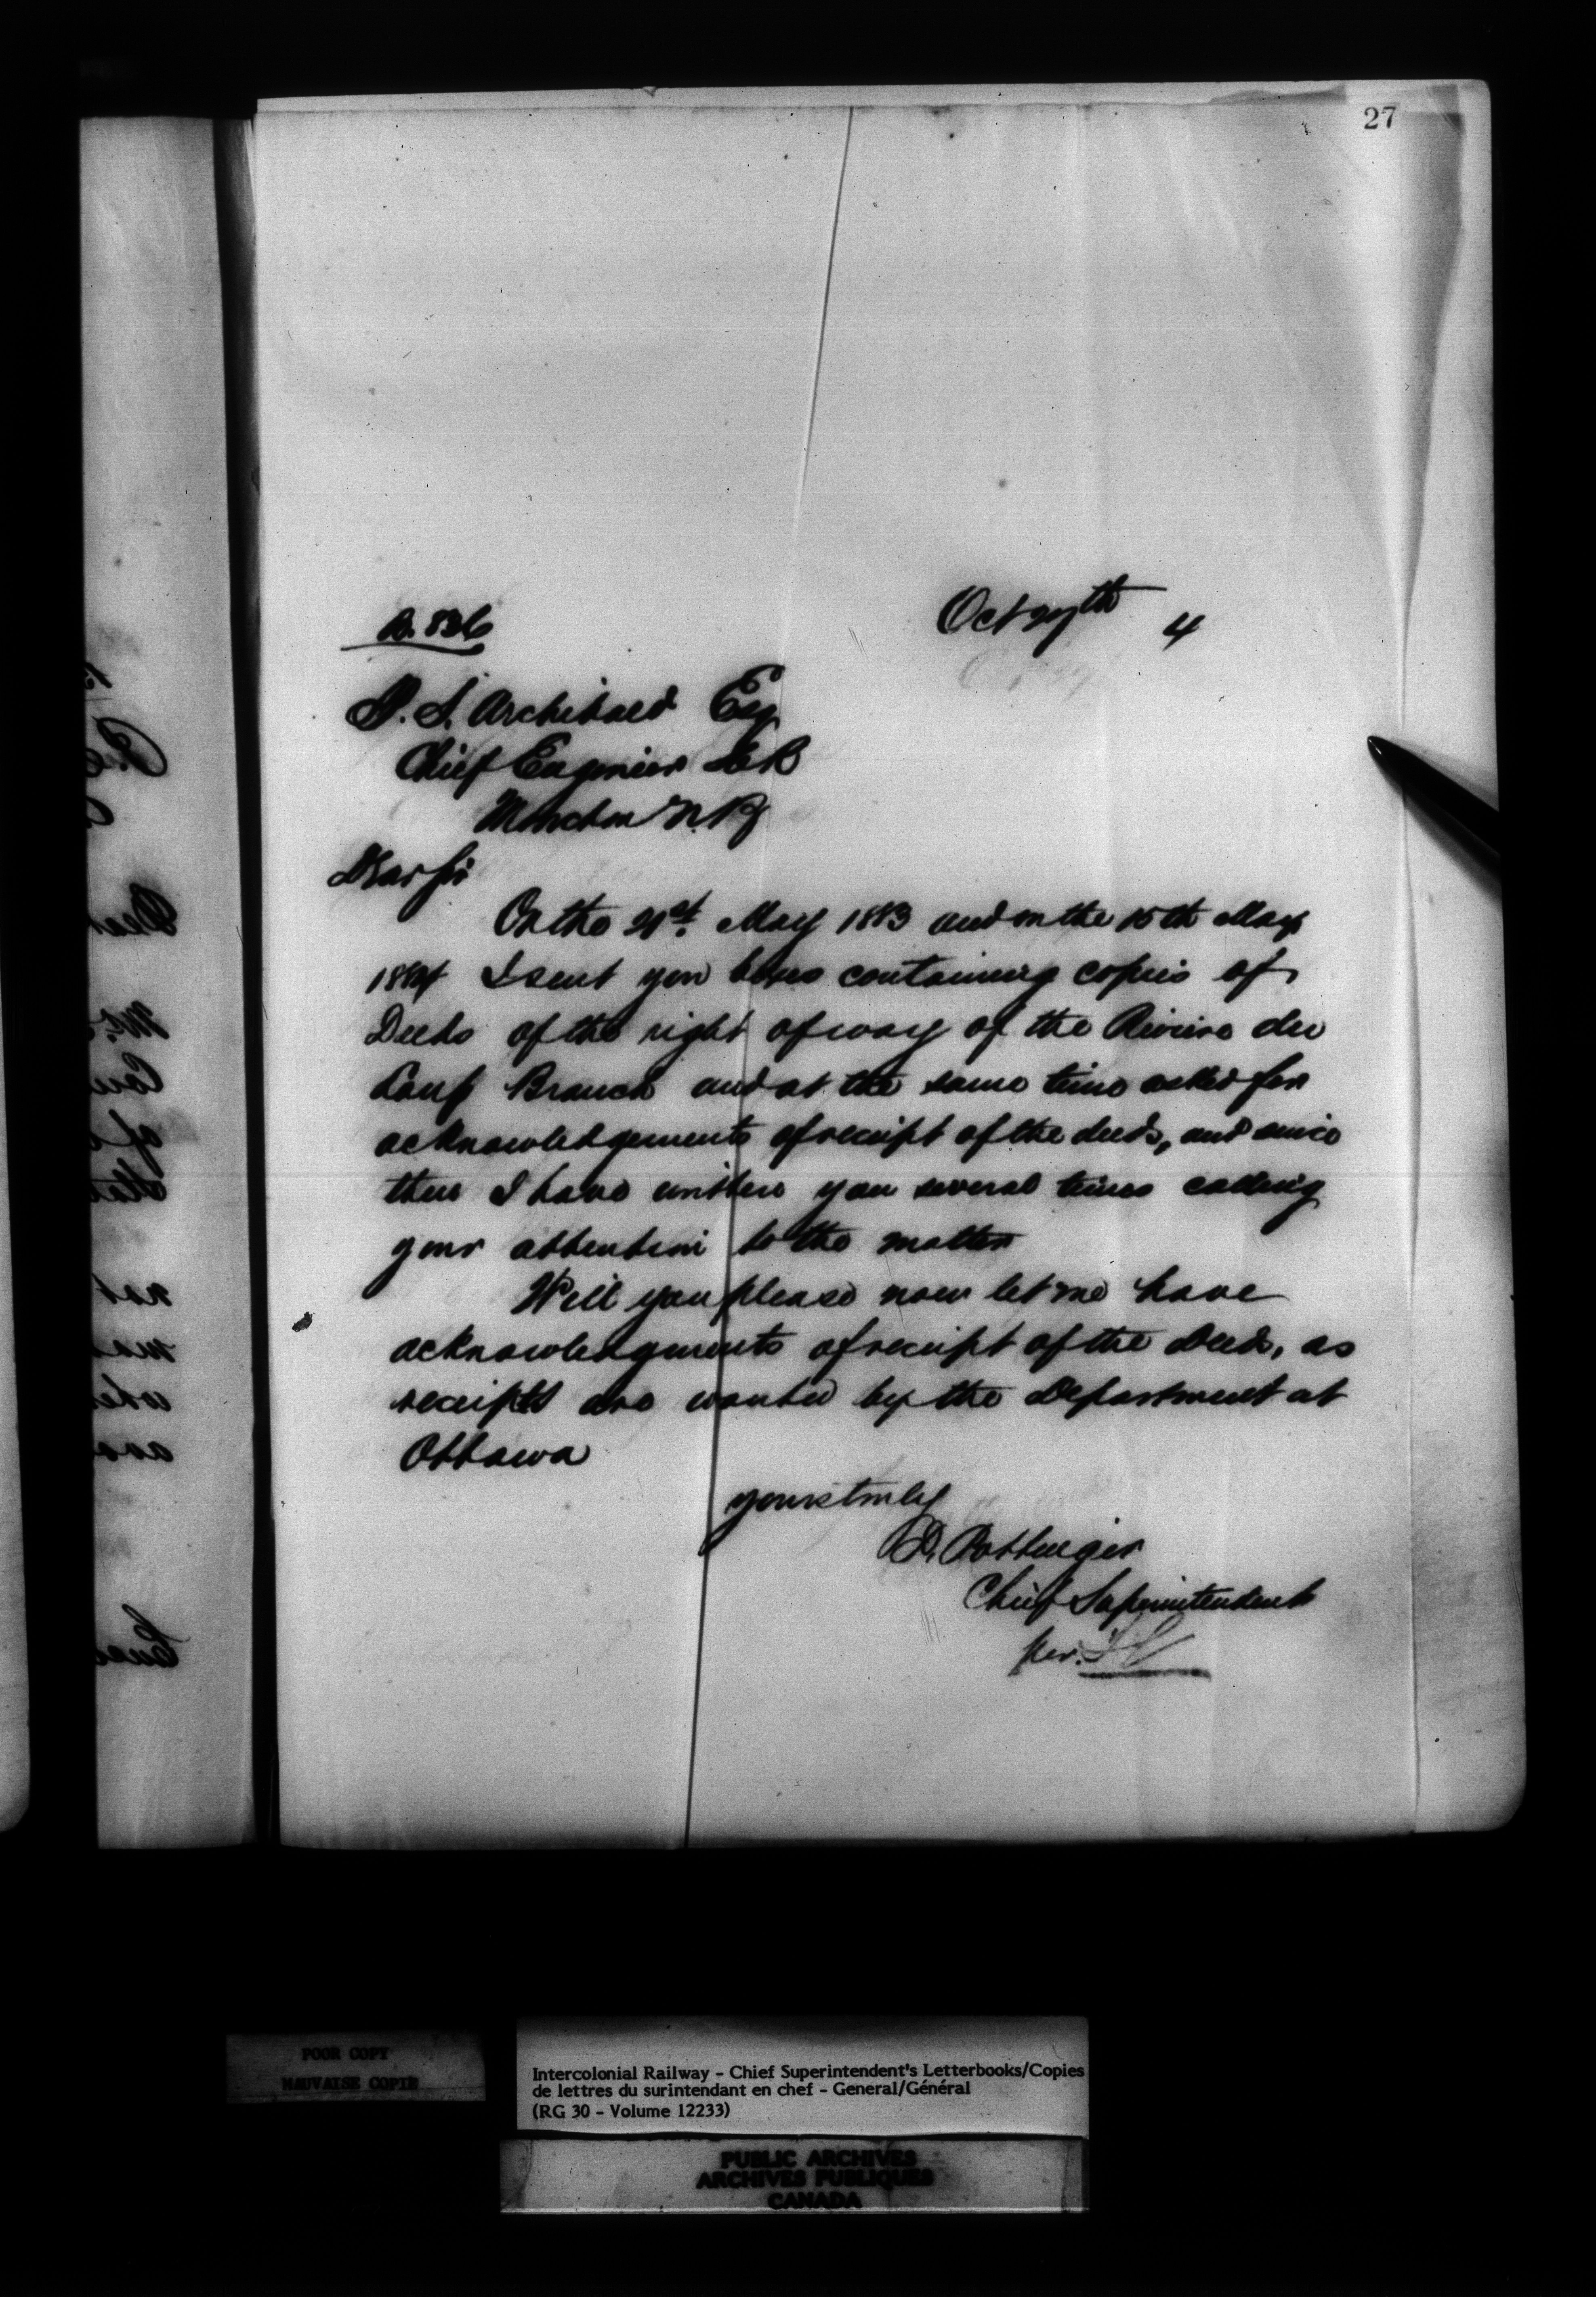 27
Oct 27th 4
B. 836
P. S. Archibald Esq
Chief Engineer I.C.R
Moncton N.B
Dear Sir
On the 21st. May 1883 and on the 15th May
1884 I sent you boxes containing copies of
Deeds of the right of way of the Riviere du
Loup Branch and at the same time asked for
acknowledgements of receipt of the deeds, and since
then I have written you several times calling
your attention to the matter
Will you please now let me have
acknowledgments of receipt of the Deeds, as
receipts are wanted by the Department at
Ottawa
yours truly
D. Pottinger
Chief Superintendent
per.
POOR COPY
MAUVAISE COPIE
Intercolonial Railway - Chief Superintendent's Letterbooks/Copies
de lettres du surintendant en chef - General/Général
(RG 30 - Volume 12233)
PUBLIC ARCHIVES
ARCHIVES PUBLIQUES
CANADA